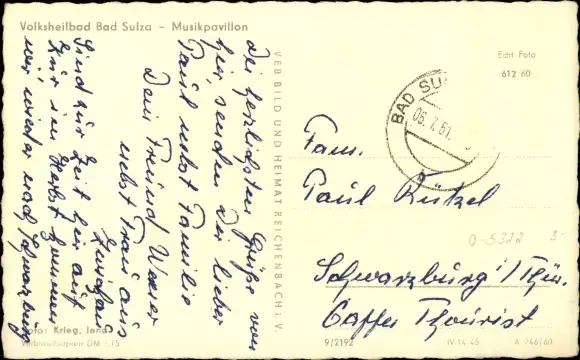 Volksheilbad Bad Sulza – Musikpavillon
Die herzlichsten Grüße von
hier senden Dir lieber
Paul nebst Familie
Dein Freund
nebst Frau aus
Sind zur Zeit hier auf
Kur im Herbst kommen
wir wieder nach Schwarzburg
Foto: Krieg, Jena
Verbraucherpreis DM -,15
VEB BILD UND HEIMAT REICHENBACH i. V.
Echt Foto
612/60
BAD SU
06.7.61
Fam.
Paul Rützel
0-5322
Schwarzburg/Thür.
Caffee Thourist
9/2192
IV-14-45
A 746/60